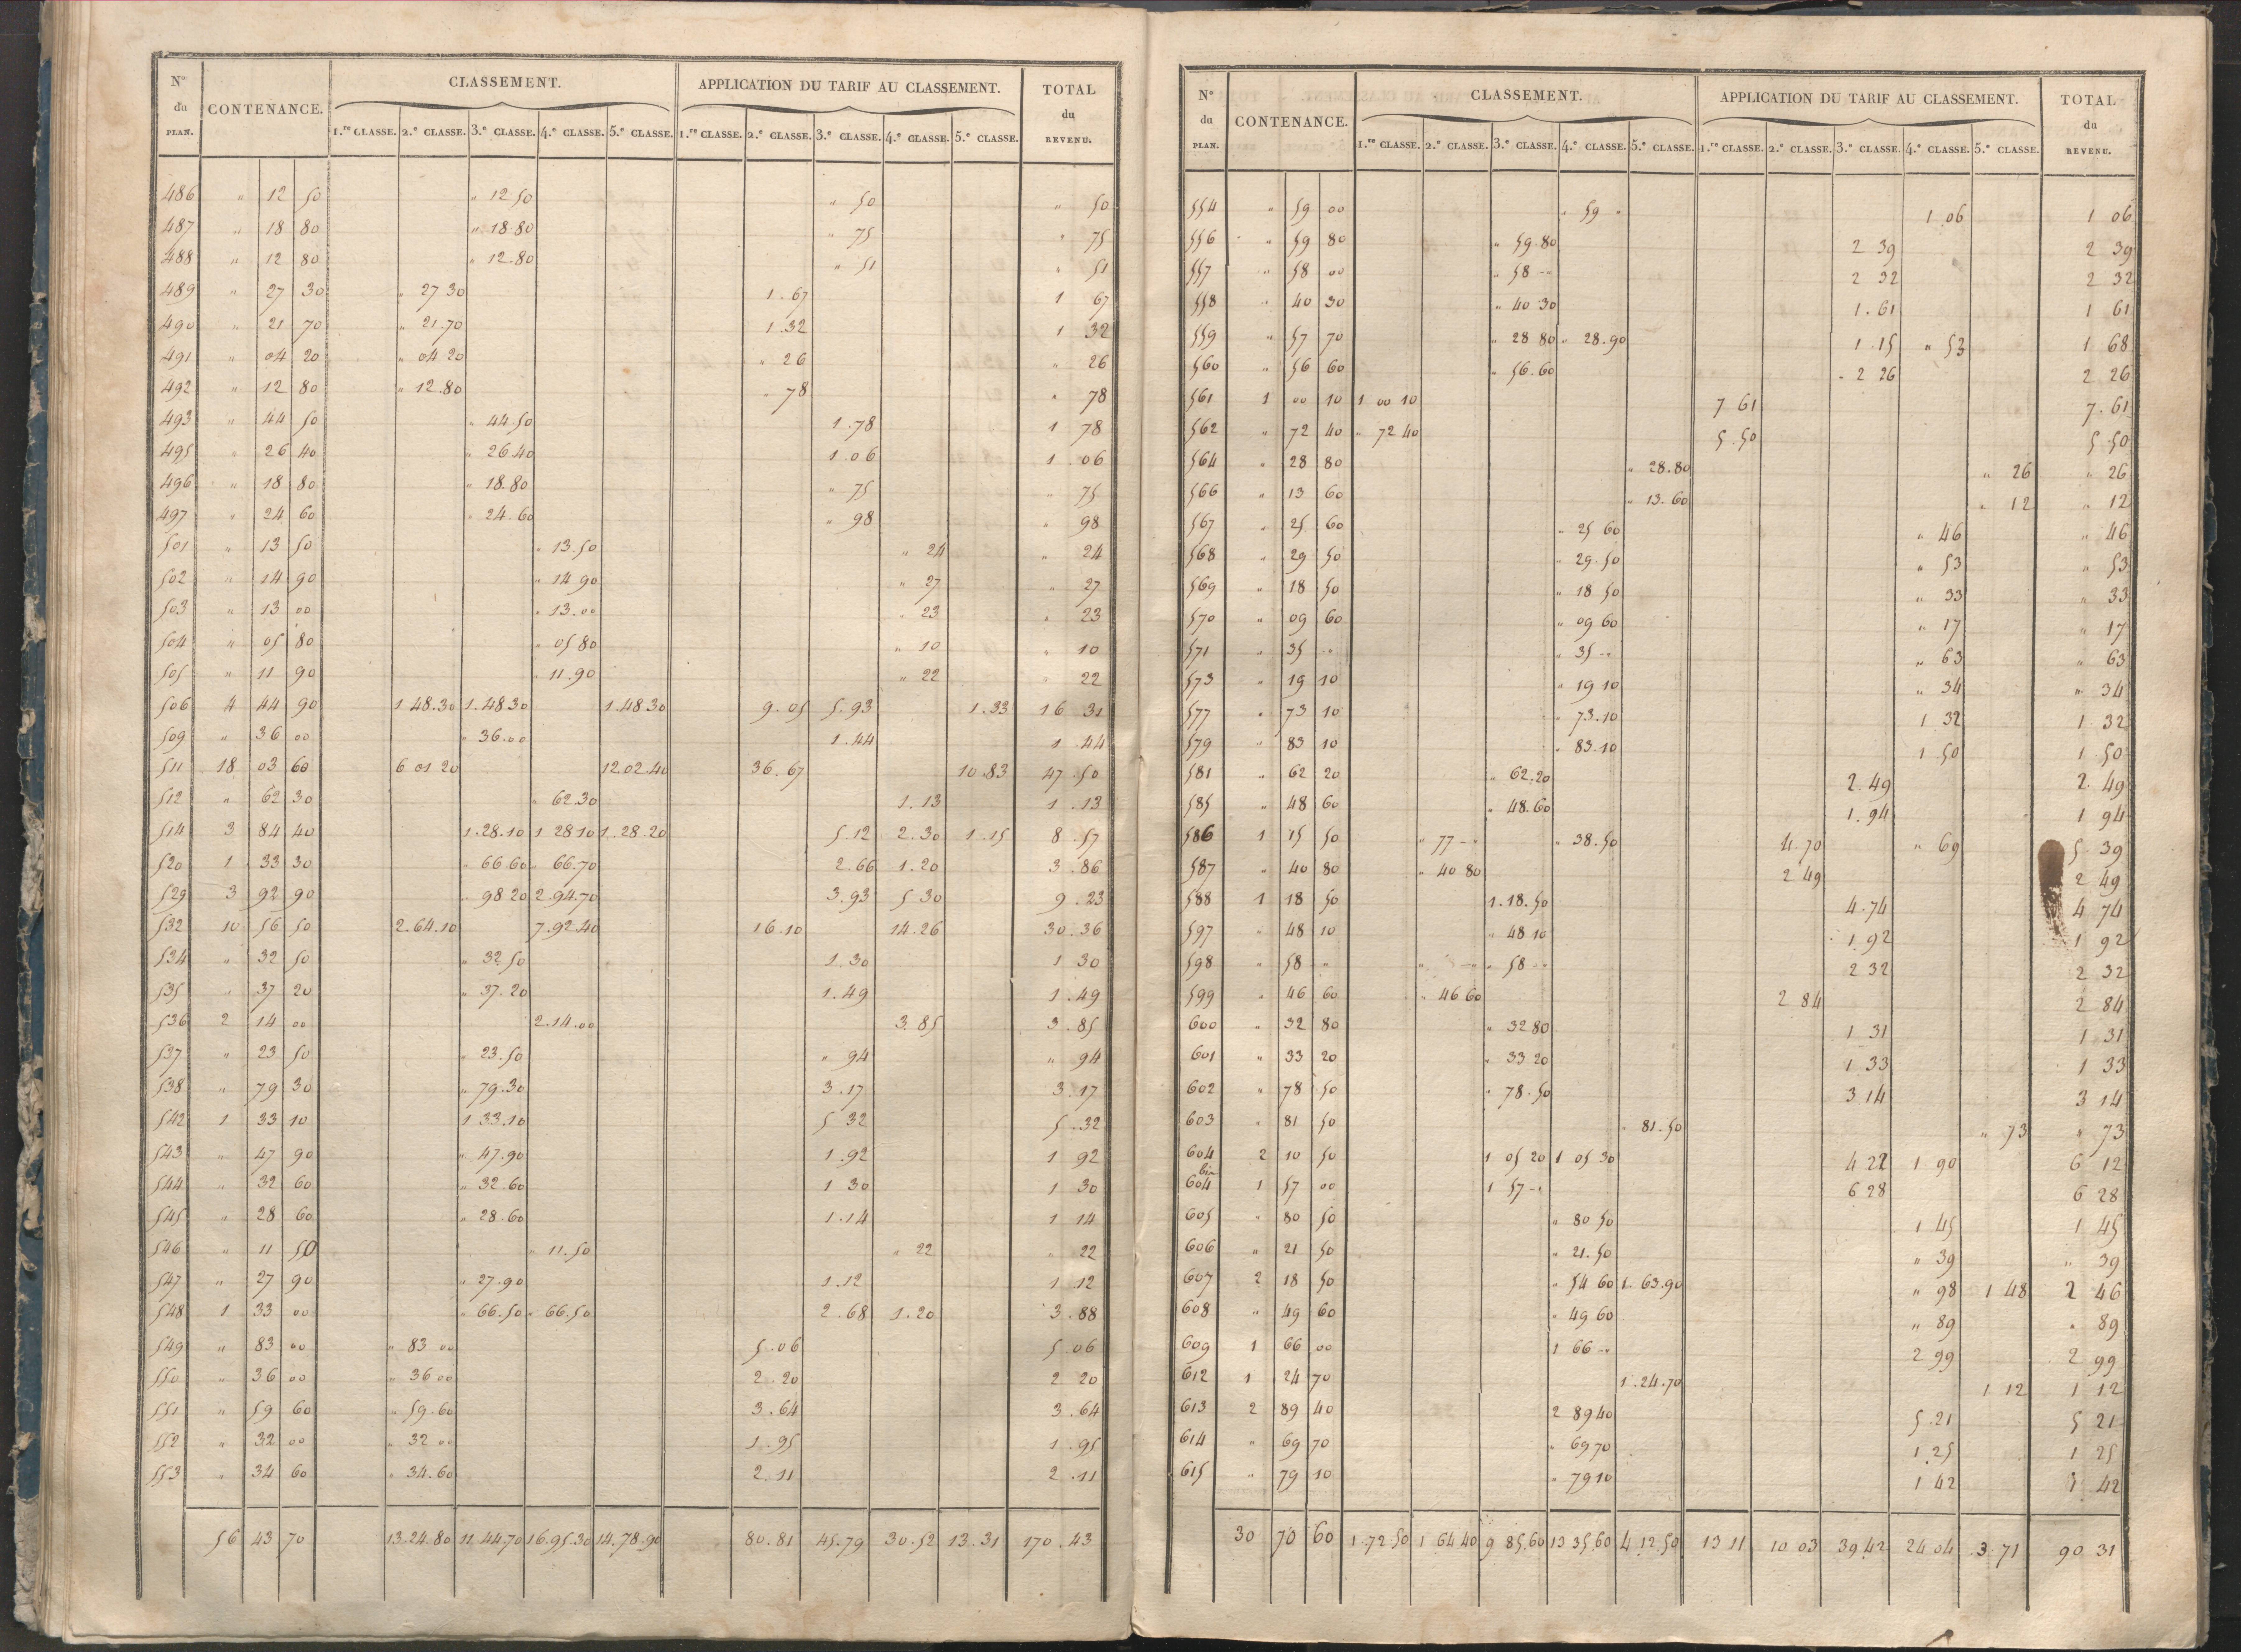 N° du PLAN. CONTENANCE. CLASSEMENT. APPLICATION DU TARIF AU CLASSEMENT. TOTAL du REVENU.
1.re CLASSE. 2.e CLASSE. 3.e CLASSE. 4.e CLASSE. 5.e CLASSE. 1.re CLASSE. 2.e CLASSE. 3.e CLASSE. 4.e CLASSE. 5.e CLASSE.
486 " 12 50 " 12 50 " 50 " 50
487 " 18 80 " 18.80 " 75 " 75
488 " 12 80 " 12.80 " 51 " 51
489 " 27 30 " 27 30 1.67 1 67
490 " 21 70 " 21.70 1.32 1 32
491 " 04 20 " 04 20 " 26 " 26
492 " 12 80 " 12.80 " 78 " 78
493 " 44 50 " 44.50 1.78 1 78
495 " 26 40 " 26.40 1.06 1.06
496 " 18 80 " 18.80 " 75 " 75
497 " 24 60 " 24.60 " 98 " 98
501 " 13 50 " 13.50 " 24 " 24
502 " 14 90 " 14 90 " 27 " 27
503 " 13 00 " 13.00 " 23 " 23
504 " 05 80 " 05 80 " 10 " 10
505 " 11 90 " 11.90 " 22 " 22
506 4 44 90 1 48.30 1.48 30 1.48.30 9.05 5.93 1.33 16 31
509 " 36 00 " 36.00 1.44 1.44
511 18 03 60 6 01 20 12.02.40 36.67 10.83 47.50
512 " 62 30 " 62.30 1.13 1.13
514 3 84 40 1.28.10 1 28 10 1.28.20 5.12 2.30 1.15 8.57
520 1 33 30 " 66.60 " 66.70 2.66 1.20 3.86
529 3 92 90 " 98 20 2.94.70 3.93 5 30 9.23
532 10 56 50 2.64.10 7.92.40 16.10 14.26 30.36
534 " 32 50 " 32 50 1.30 1 30
535 " 37 20 " 37.20 1.49 1.49
536 2 14 00 2.14.00 3.85 3.85
537 " 23 50 " 23.50 " 94 " 94
538 " 79 30 " 79.30 3.17 3.17
542 1 33 10 1 33.10 5 32 5.32
543 " 47 90 " 47.90 1.92 1 92
544 " 32 60 " 32.60 1 30 1 30
545 " 28 60 " 28.60 1.14 1 14
546 " 11 50 " 11.50 " 22 " 22
547 " 27 90 " 27.90 1.12 1.12
548 1 33 00 " 66.50 " 66.50 2.68 1.20 3.88
549 " 83 00 " 83 00 5.06 5.06
550 " 36 00 " 36 00 2.20 2 20
551 " 59 60 " 59.60 3.64 3.64
552 " 32 00 " 32 00 1.95 1.95
553 " 34 60 " 34.60 2.11 2.11
56 43 70 13.24.80 11.44.70 16.95.30 14.78.90 80.81 45.79 30.52 13.31 170.43
N° du PLAN. CONTENANCE. CLASSEMENT. APPLICATION DU TARIF AU CLASSEMENT. TOTAL du REVENU.
1.re CLASSE. 2.e CLASSE. 3.e CLASSE. 4.e CLASSE. 5.e CLASSE. 1.re CLASSE. 2.e CLASSE. 3.e CLASSE. 4.e CLASSE. 5.e CLASSE.
554 " 59 00 " 59 " 1 06 1 06
556 " 59 80 " 59.80 2 39 2 39
557 " 58 00 " 58 -- 2 32 2 32
558 " 40 30 " 40 30 1.61 1 61
559 " 57 70 " 28 80 " 28.90 1.15 " 53 1 68
560 " 56 60 " 56.60 2 26 2 26
561 1 00 10 1 00 10 7 61 7.61
562 " 72 40 " 72 40 5.50 5.50
564 " 28 80 " 28.80 " 26 " 26
566 " 13 60 " 13.60 " 12 " 12
567 " 25 60 " 25 60 " 46 " 46
568 " 29 50 " 29.50 " 53 " 53
569 " 18 50 " 18 50 " 33 " 33
570 " 09 60 " 09 60 " 17 " 17
571 " 35 " " 35 -- " 63 " 63
573 " 19 10 " 19 10 " 34 " 34
577 " 73 10 " 73.10 1 32 1 32
579 " 83 10 " 83.10 1.50 1.50
581 " 62 20 " 62.20 2.49 2.49
585 " 48 60 " 48.60 1.94 1 94
586 1 15 50 " 77 -- " 38.50 4.70 " 69 5 39
587 " 40 80 " 40 80 2 49 2 49
588 1 18 50 1.18.50 4.74 4 74
597 " 48 10 " 48 10 1.92 1 92
598 " 58 " " -- " 58 -- 2 32 2 32
599 " 46 60 " 46 60 2 84 2 84
600 " 32 80 " 32 80 1 31 1 31
601 " 33 20 " 33 20 1 33 1 33
602 " 78 50 " 78.50 3 14 3 14
603 " 81 50 " 81.50 " 73 " 73
604 2 10 50 1 05 20 1 05 30 4 22 1 90 6 12
604 bis 1 57 00 1 57 -- 6 28 6 28
605 " 80 50 " 80 50 1 45 1 45
606 " 21 50 " 21.50 " 39 " 39
607 2 18 50 " 54 60 1.63.90 " 98 1 48 2 46
608 " 49 60 " 49 60 " 89 " 89
609 1 66 00 1 66 -- 2 99 2 99
612 1 24 70 1.24.70 1 12 1 12
613 2 89 40 2 89 40 5.21 5 21
614 " 69 70 " 69 70 1.25 1 25
615 " 79 10 " 79 10 1 42 1 42
30 70 60 1.72.50 1 64 40 9 85.60 13 35.60 4 12.50 13 11 10 03 39.42 24 04 3.71 90 31